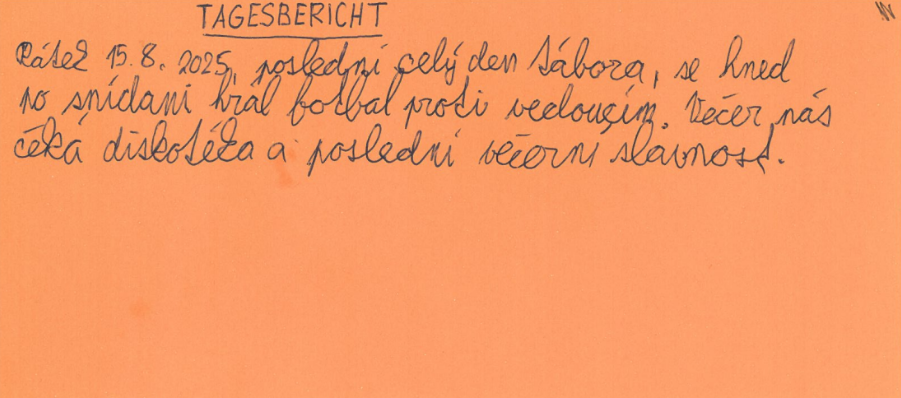 TAGESBERICHT
Pátek 15. 8. 2025, poslední celý den tábora, se hned
po snídani hrál fotbal proti vedoucím. Večer nás
čeká diskotéka a poslední večerní slavnost.